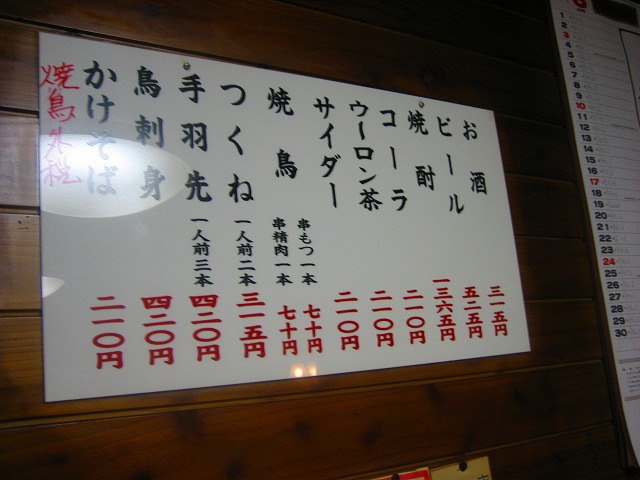 お酒 三一五円
ビール 五二五円
焼酎 一三六五円
コーラ 二一〇円
ウーロン茶 二一〇円
サイダー 二一〇円
焼鳥 串もつ一本 七十円
串精肉一本 七十円
つくね 一人前二本 三一五円
手羽先 一人前三本 四二〇円
鳥刺身 四二〇円
かけそば 二一〇円
焼鳥外税
1
2
3
4
5
6
7
8
9
10
11
12
13
14
15
16
17
18
19
20
21
22
23
24
25
26
27
28
29
30